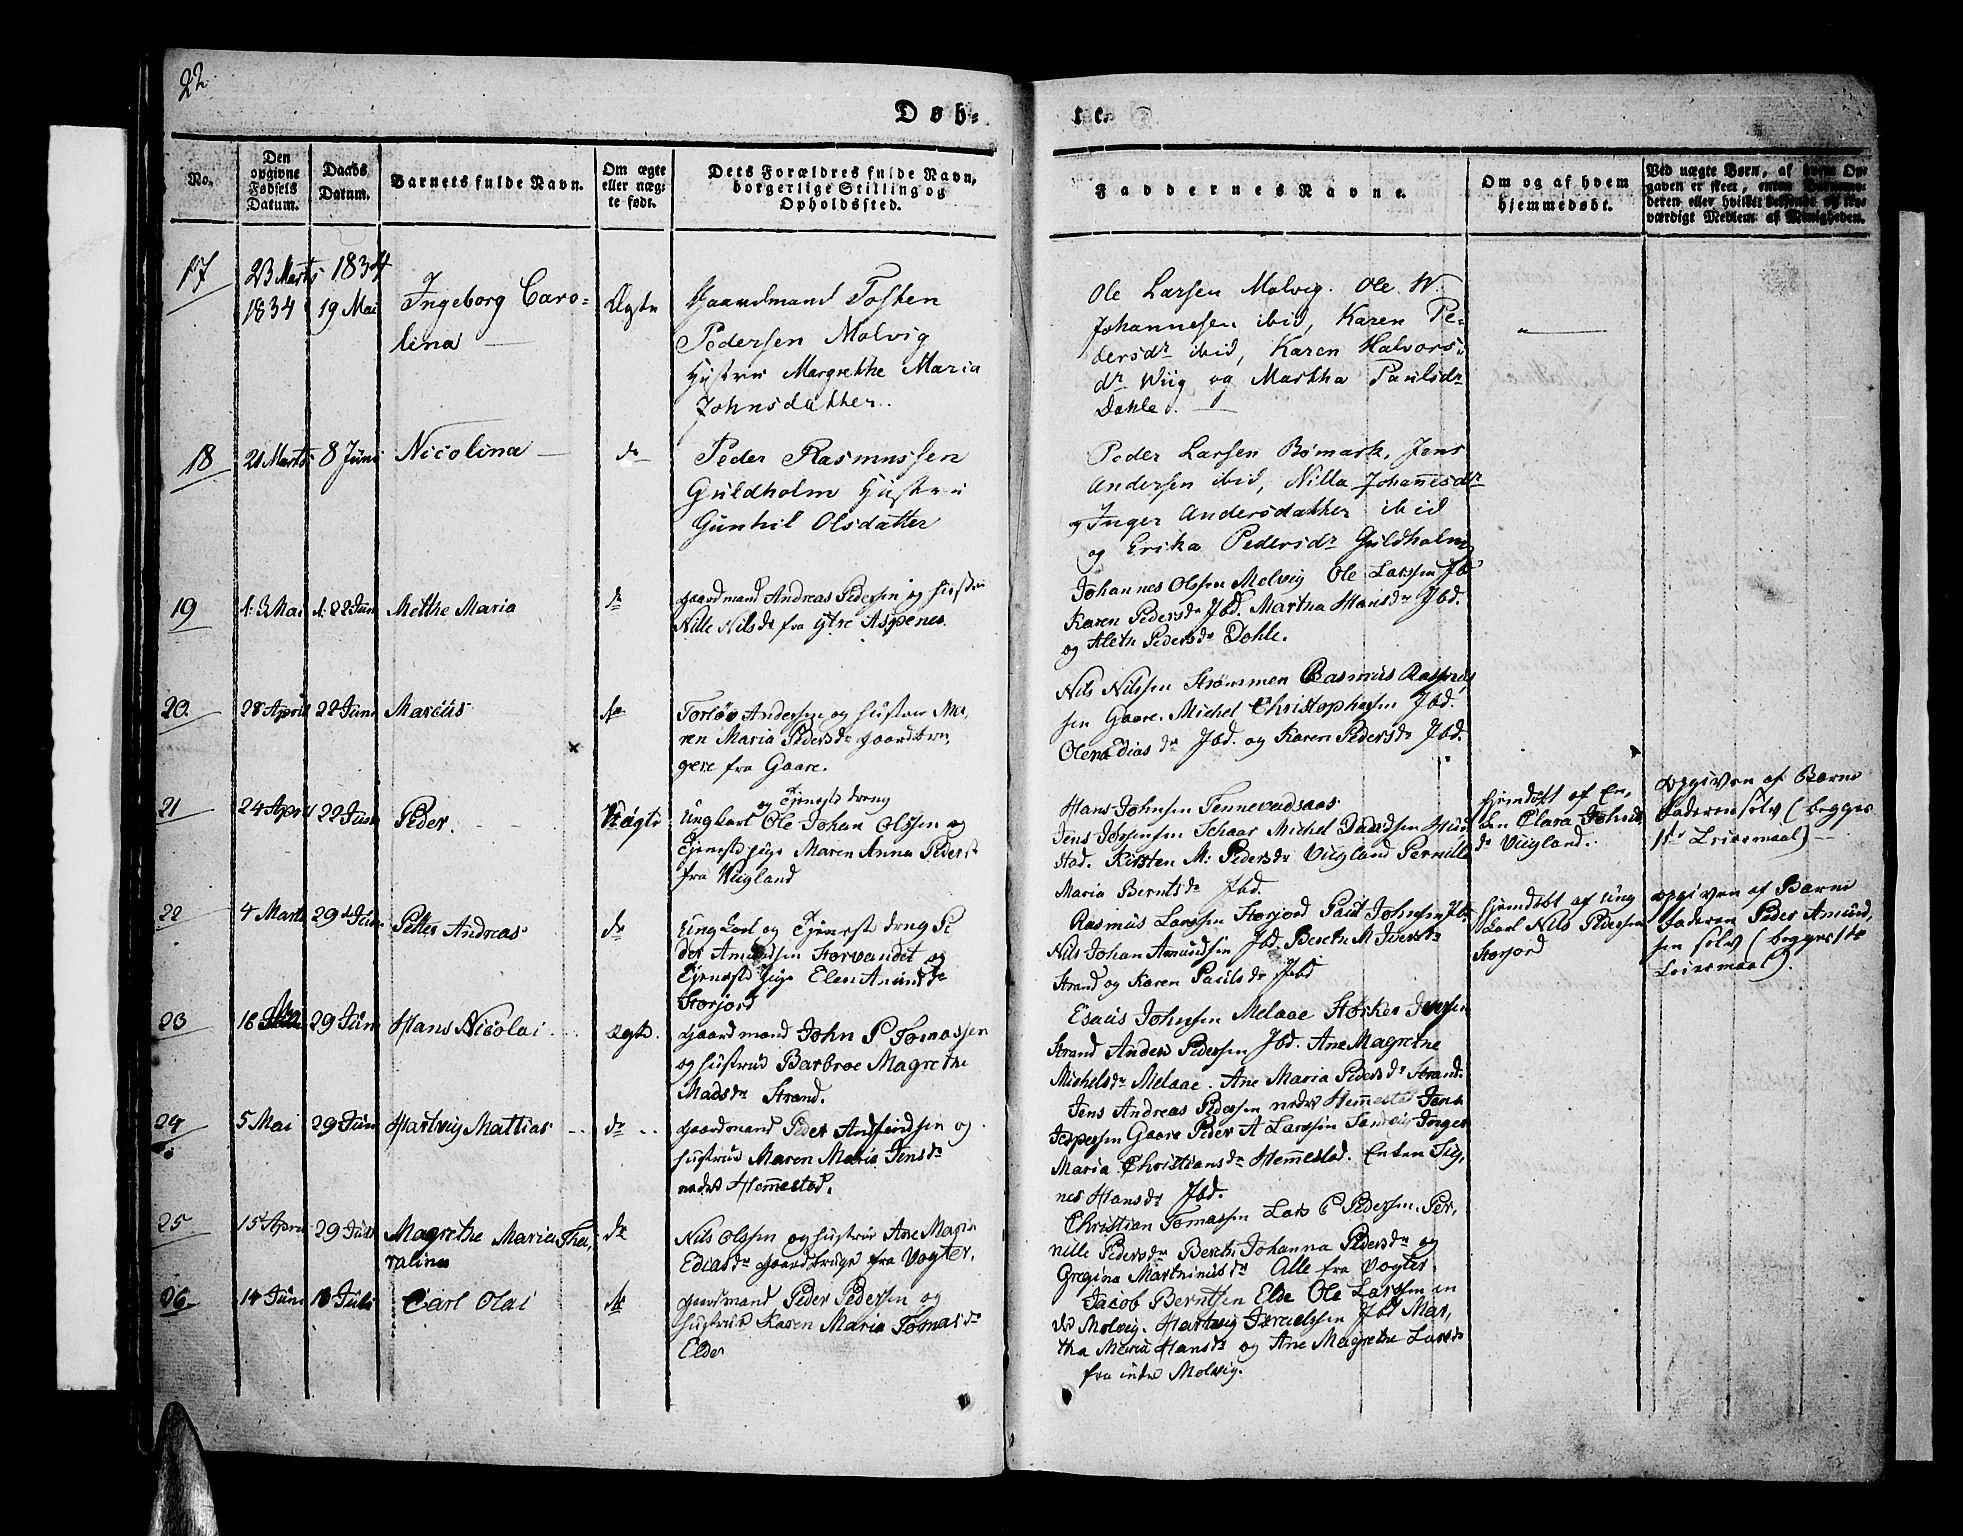 22.
Døb=
te.
No.
Den opgivne Fødsels Datum.
Daabs Datum.
Barnets fulde Navn.
Om ægte eller uægte født.
Dets Forældres fulde Navn, borgerlige Stilling og Opholdssted.
Faddernes Navne.
Om og af hvem hjemmedøbt.
Ved uægte Børn, af hvem Opgaven er skeet, enten
17
23 Marts 1834
1834 19 Mai
Ingeborg Caro-
lina
Ægte
Gaardmand Tosten
Pedersen Molvig
Hustru Margrethe Maria
Johnsdatter.
Ole Larsen Molvig. Ole W.
Johannesen ibid, Karen Pe-
dersdr ibid, Karen Halvors-
dr Wiig og Martha Paulsdr
Dahle.
18
21 Marts 8 Juni
Nicolina
do
Peder Rasmussen
Guldholm Hustru
Gunhil Olsdatter
Peder Larsen Bømark, Jens
Andersen ibid, Nilla Johannesdr
og Inger Andersdatter ibid
og Erika Pedersdr Guldholm
19
1. 3 Mai 1. 22 Juni
Methe Maria
do
gaardmand Andreas Pedersen og hustru
Nille Nilsdr fra ytre Aspenes.
Johannes Olsen Melvig Ole Larssen Ibd
Karen Pedersdr Ibd. Martha Hansdr Ibd.
og Aleth Pedersdr Dohle.
20.
28 April 22 Juni
Marcus
do
Torløv Andersen og hustru Ma,
ren Maria Pedersdr gaardbru,
gere fra Gaare.
Nils Nilssen Strømmen Rasmus Rasmus
sen Gaare. Michel Christophersen Ibd.
Olena Edias dr Ibd. og Karen Pedersdr Ibd.
21
24 April 22 Juni
Peder.
Uægte
Ungkarl og Tjeneste dreng Ole Johan Olssen og
Tjeneste pige Maren Anna Pedersdr
fra Viigland
Hans Johnsen Tennevadsaas.
Jens Jørgensen Schaar Michel Davidsen Hund
stad. Kirsten M: Pedersdr Viigland Pernille
Maria Berntsdr Ibd.
hjemdøbt af En,
ken Clara Johns
dr Viigland.
opgiven af Barne
faderen sølv (begges
1ste Leiermaal)
22
4 Marts 29de Juni
Petter Andreas
do
Ung karl og Tjeneste dreng Pe
der Amundsen Storvandet og
Tjeneste pige Elen Amundsdr
Storjord
Rasmus Larssen Storjord Paul Johnsen Ibd
Nils Johan Amundsen Ibd. Bereth M Iversdr
Strand og Karen Paulsdr Ibd
hjemdøbt af Ung
karl Nils Pedersen
Storjord
opgiven af Barne
faderen Peder Amund,
sen sølv (begges 1ste
Leiermaal).
23
16 29 Juni
Hans Nicolai
Ægte.
gaardmand John P Tomassen
og hustrud Barbroe Magrethe
Madsdr Strand.
Esaius Johnsen Melaae Størker Iversen
Strand Anders Pedersen Ibd. Ane Magrethe
Michelsdr Melaae. Ane Maria Pedersdr Strand.
24
5 Mai 29 Juni
Hartvig Mattias
do
gaardmand Peder Andfindsen og
hustrud Maren Maria Jensdr
nedre Hemmestad.
Jens Andreas Pedersen nedre Hemmestad Jens
Jespersen Gaare Peder A Larssen Sandvig Inger
Maria Christiansdr Hemmestad. Enken Sig,
nes Hansdr Ibd.
25
15 April 29 Juni
Magrethe Maria Tha,
ralina
do
Nils Olssen og hustrue Ane Maria
Ediasdr gaardbruge fra Vogter.
Christian Tomassen Lars P Pedersen. Per,
nille Pedersdr Bereth Johanna Pedersdr og
Gregina Martninusdr Alle fra Vogter.
26.
14 Juni 13 Juli
Carl Olai
do
gaardmand Peder Pedersen og
hustrue Karen Maria Tomasdr
Elde
Jacob Berntsen Elde Ole Larssen in
dre Molvig. Hartvig Israelssen Ibd Mar,
tha Maria Hansdr og Ane Magrethe Larsdr
fra indre Molvig.